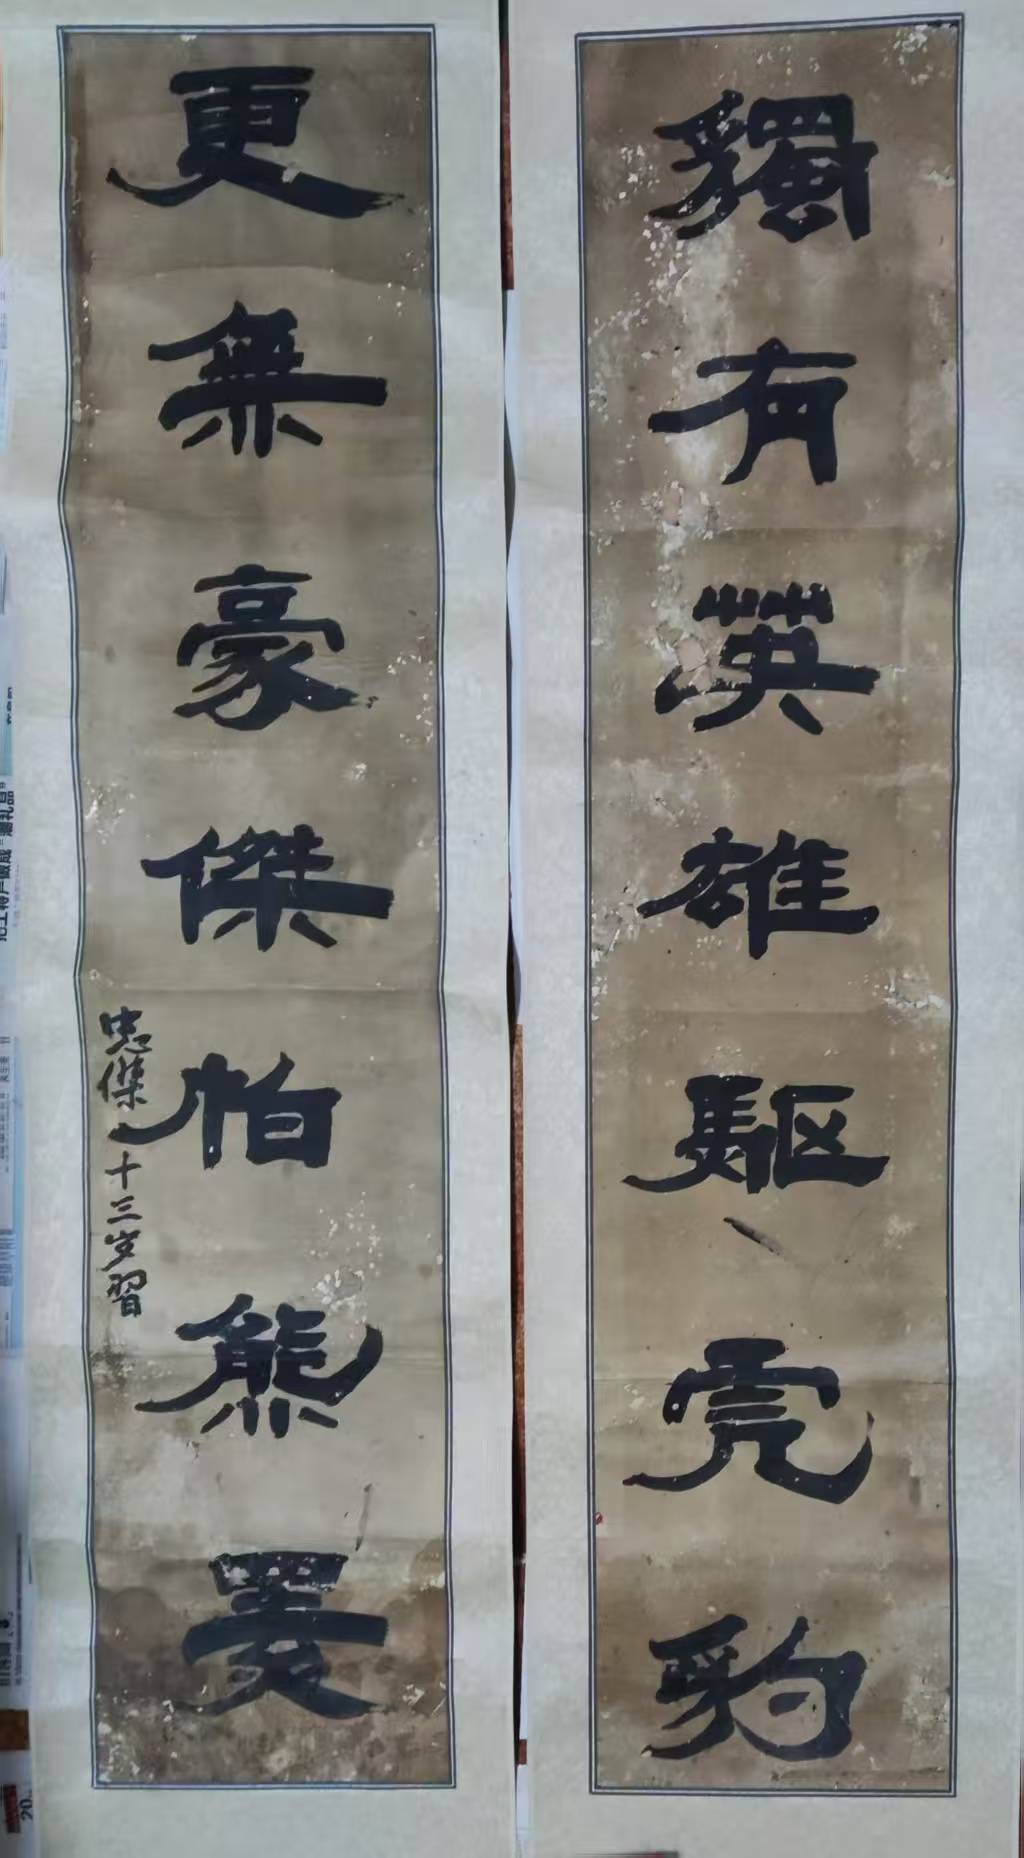 獨有英雄驅虎豹
更無豪傑怕熊罴
忠傑十三岁習